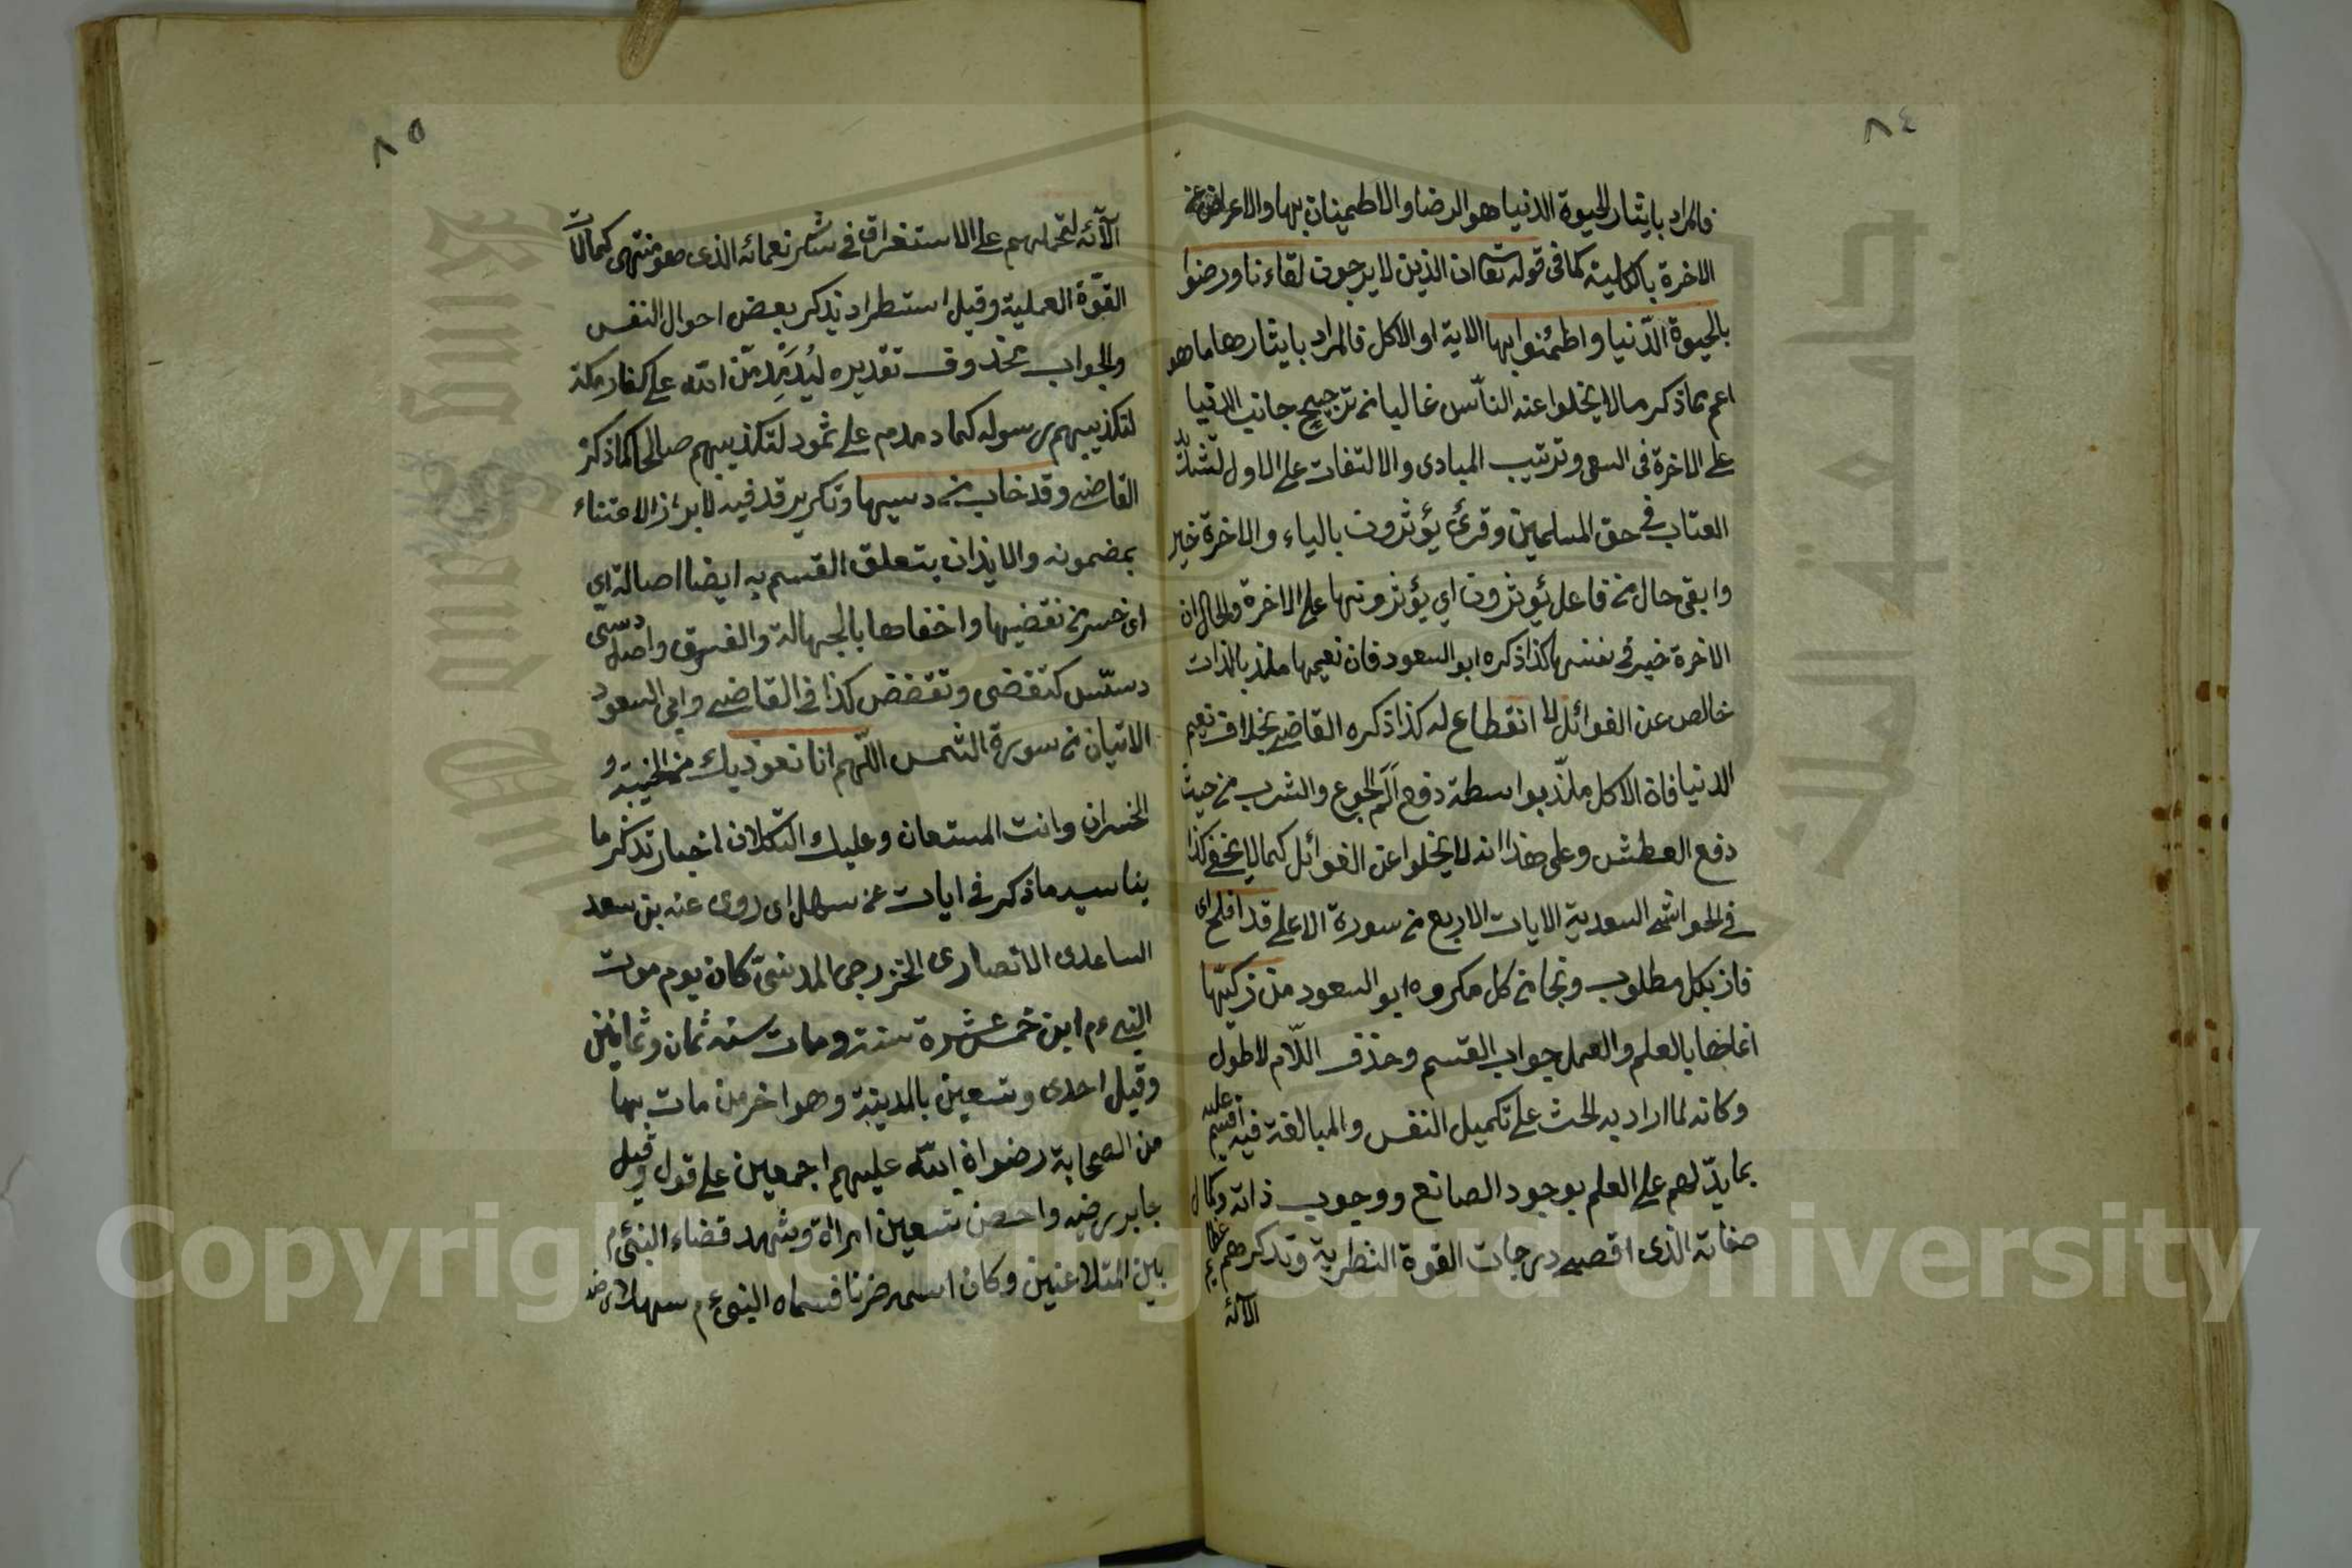 ٨٤
فالمراد بايثار الحيوة الدنيا هو الرضا والاطمينان بها والاعراض عن
الاخرة بالكلية كما فى قوله تعا ان الذين لا يرجون لقاءنا ورضوا
بالحيوة الدّنيا واطمئنوا بها الاية او الاكل فالمراد بايثارها ما هو
اعم مما ذكر ما لا يخلوا عنه النّاس غالبا من ترجيح جانب الدنيا
على الاخرة فى السعى وترتيب المبادى والالتفات على الاول لتشديد
العتاب فى حق المسلمين وقرئ يؤثرون بالياء والاخرة خير
وابقى حال من فاعل تؤثرون اي يؤثرونها على الاخرة والحال ان
الاخرة خير فى نفسها كذا ذكره ابو السعود فان نعيمها ملذ بالذات
خالص عن الغوائل لا انقطاع له كذا ذكره القاضى بخلاف نعيم
الدنيا فان الاكل ملذّ بواسطة دفع الم الجوع والشرب من حيث
دفع العطش وعلى هذا انه لا يخلوا عن الغوائل كما لا يخفى كذا
فى الحواشى السعدية الايات الاربع من سورة الاعلى قد افلح اى
فاز بكل مطلوب ونجا من كل مكروه ابو السعود من زكيّها
انماها بالعلم والعمل جواب القسم وحذف اللّام للطول
وكانه لما اراد به الحث على تكميل النفس والمبالغة فيه اقسم عليه
بما يدّلهم على العلم بوجود الصانع ووجوب ذاته وكمال
صفاته الذى اقصى درجات القوة النظرية وتذكرهم عظائم
الآئه
٨٥
الآئه لتحملهم على الاستغراق فى شكر نعمائه الذى هو منتهى كمالات
القوّة العملية وقيل استطراد بذكر بعض احوال النفس
والجواب محذوف تقديره ليُدَمْدِمَنّ الله على كفار مكة
لتكذيبهم رسوله كما دمدم على ثمود لتكذيبهم صالحا كما ذكر
القاضى وقد خاب من دسيها وتكرير قد فيه لابراز الاعتناء
بمضمونه والايذان بتعلق القسم به ايضا اصالة اي
اى خسر من نقضيها واخفاها بالجهالة والفسوق واصل دسى
دسّس كتقضى وتقضض كذا فى القاضى وابى السعود
الاتيان من سورة الشمس اللّهم انا نعوذ بك من الخيبة و
الخسران وانت المستعان وعليك التكلان اخبار تذكر ما
يناسب ما ذكر فى ايات عن سهل اى روى عنه بن سعد
الساعدى الانصارى الخزرجى المدنىّ كان يوم موت
النبى ءم ابن خمس عشرة سنة ومات سنة ثمان وثمانين
وقيل احدى وتسعين بالمدينة وهو اخر من مات بها
من الصحابة رضوان الله عليهم اجمعين على قول وقيل
جابر رضيه واحصن تسعين امراة وشهد قضاء النبىّ ءم
بين المتلاعنين وكان اسمه حزنا فسماه النبى ءم سهلا رضه
Copyright © King Saud University
جامعة الملك
King Saud University